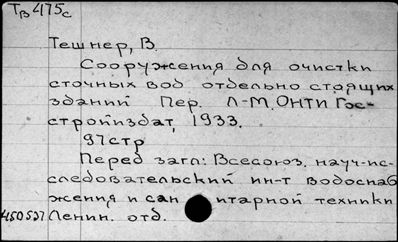 Тв 475с
Тешнер, В.
Сооружения для очистки
сточных вод отдельно стоящих
зданий Пер. Л-М, ОНТИ Гос-
стройиздат, 1933.
97стр
Перед загл: Всесоюз. науч-ис-
следовательский ин-т водоснаб
жения и сан итарной техники
450537 Ленин. отд.